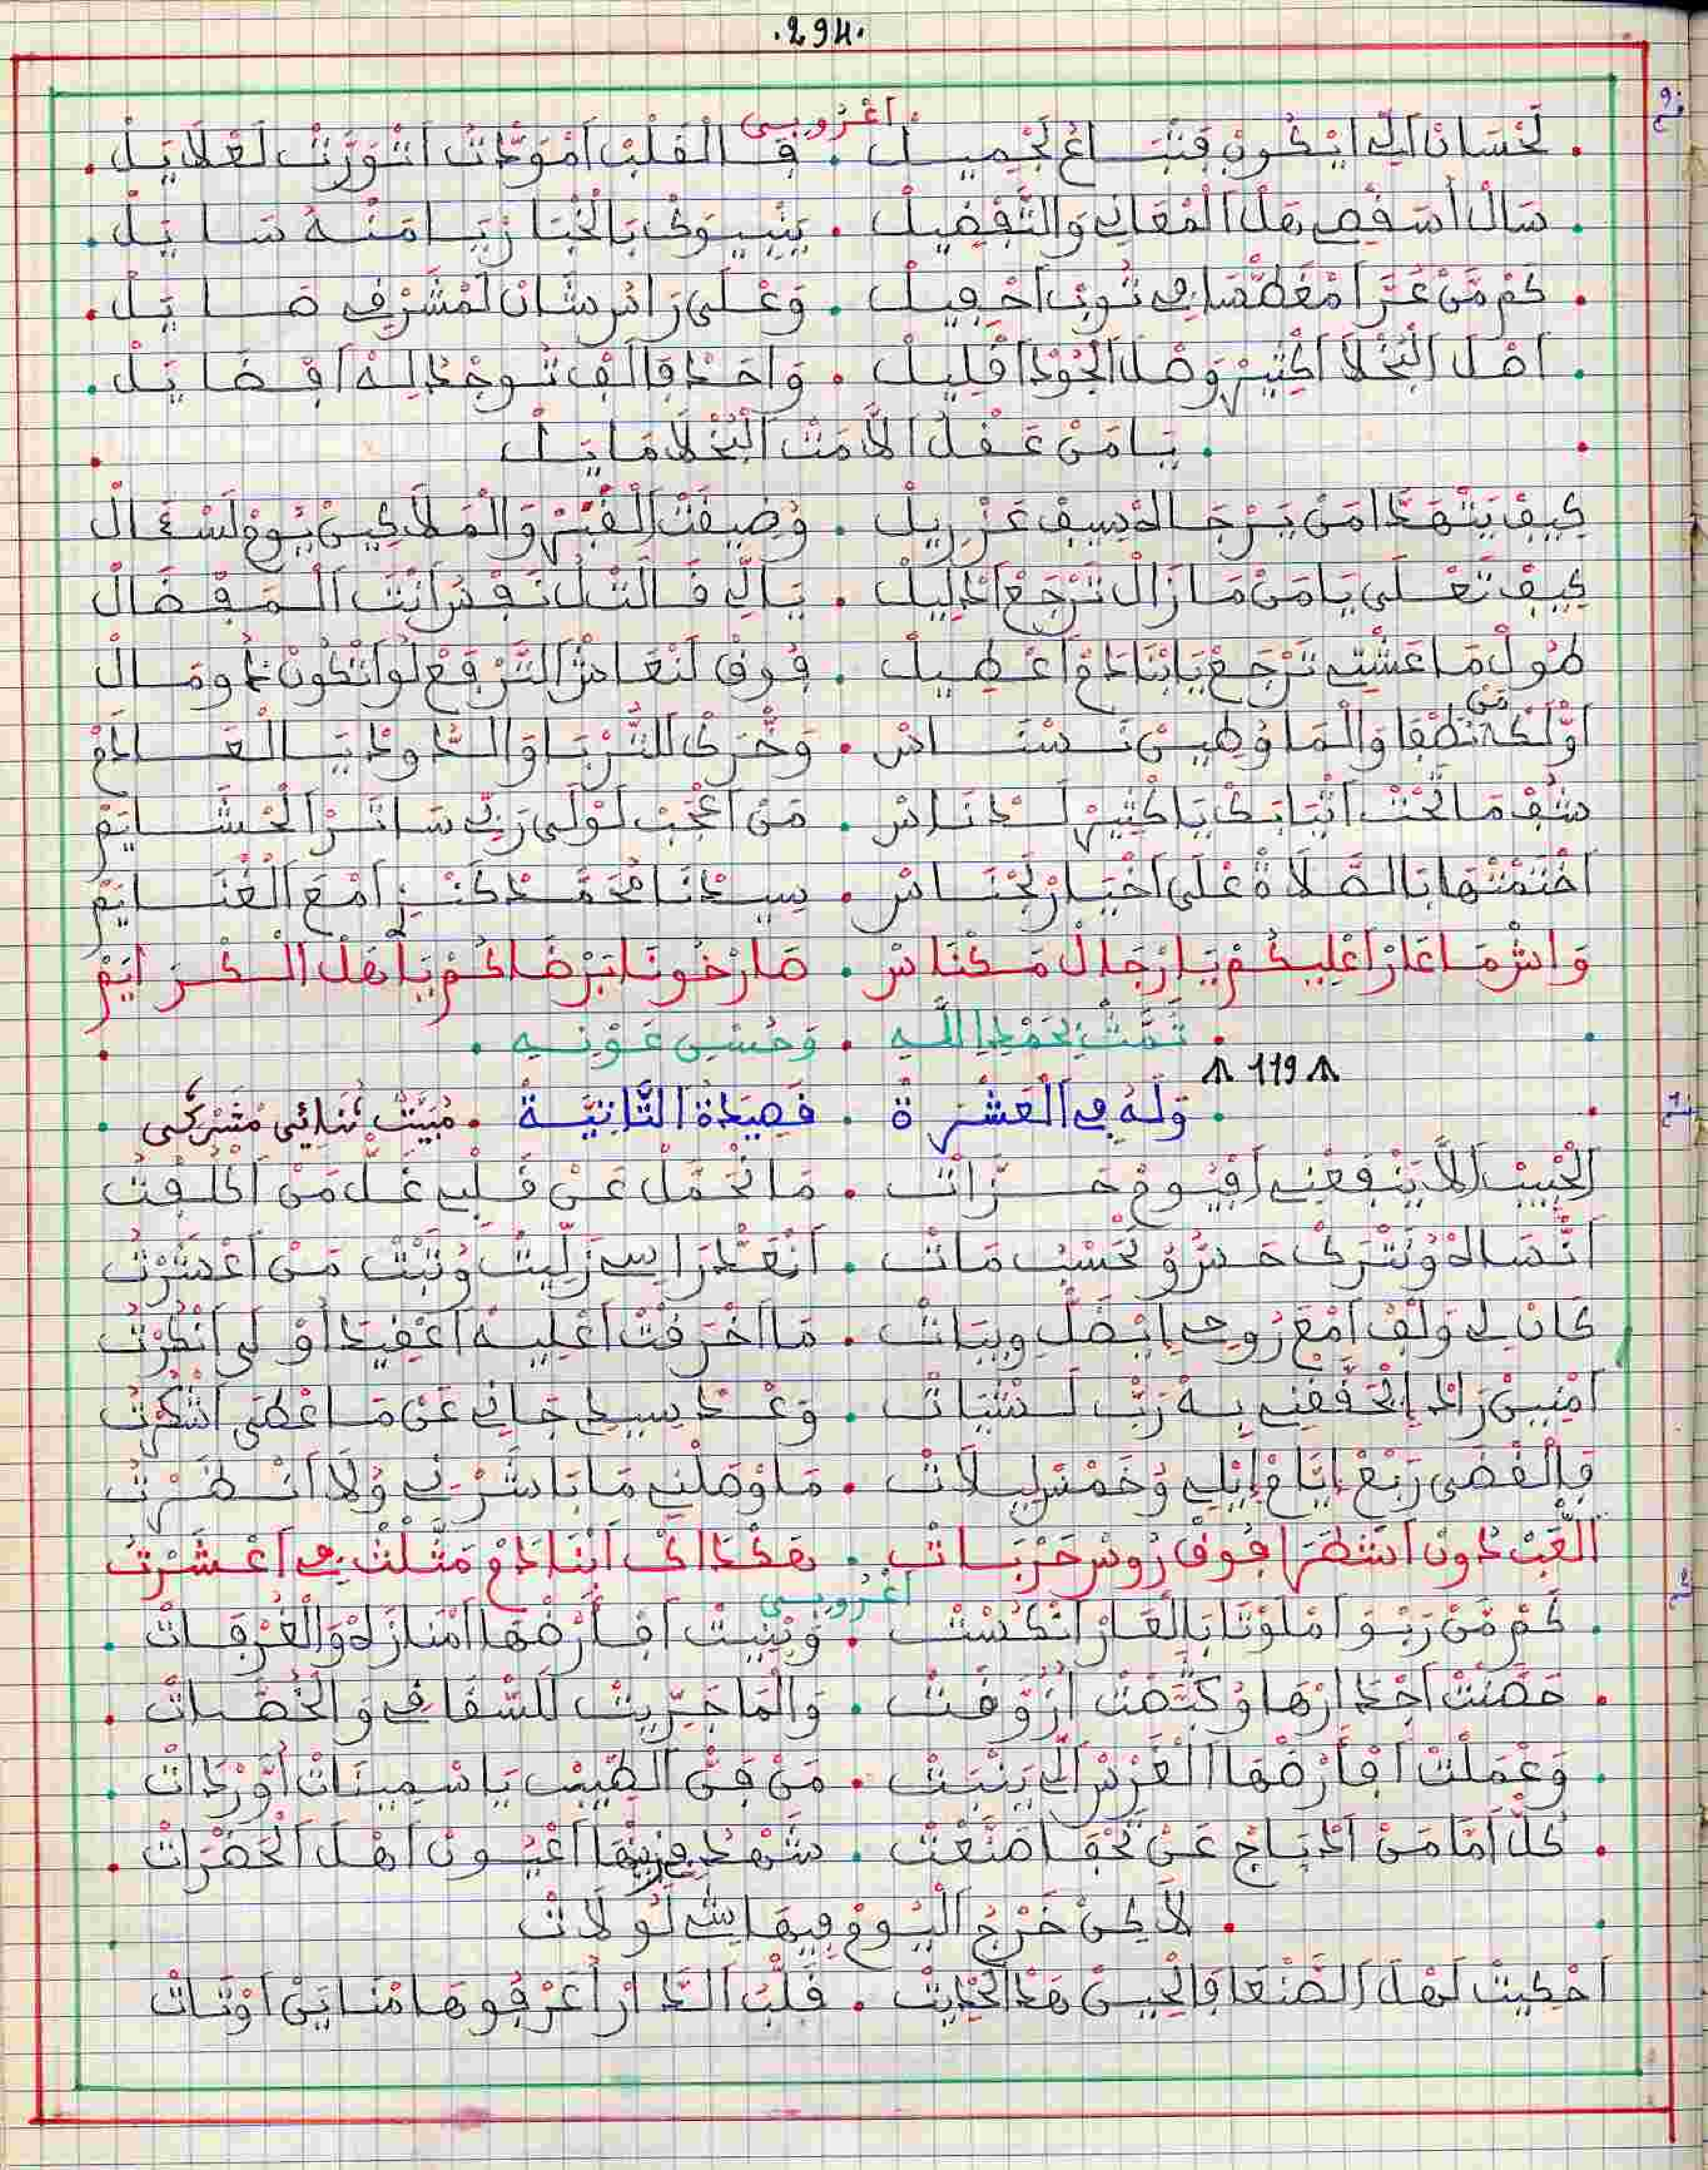 .294.
اَعْرُوبِي
. لَحْسَانْ اَلِّي اِيْكُونْ فَتْبَاعْ لَجْمِيلْ . فَالْقَلْبْ اَمْوَدّْتُ اَتْوَرَّتْ لَغْلَايَلْ .
. سَالْ
. كَمْ مَنْ عَرَّا مْغَطِّي فِي تُوبْ اَحْفِيلْ . وَعْلَى رَاسْ شَانْ لَمْشَرَّفْ صَايَلْ .
. اَهْلْ الْبُخْلَا اَكْثِيرْ وَهْلْ الْجُودْ اَقْلِيلْ . وَاحَدْ فَالَفْ تُوجَدْ لِهْ اَفْضَايَلْ .
. يَا مَنْ عَقْلُ الَامَتْ الْبُخْلَا مَايَلْ
كِيفْ يَتْهَدَّا مَنْ يَرْجَاهْ سِيفْ عَزْرِيلْ . وُضِيقْتْ الْقْبَرْ وَالْمَلَاكِينْ يُومْ لَسْئَالْ
كِيفْ تَعْلَى يَا مَنْ مَا زَالْ تَرْجَعْ اَدْلِيلْ . يَالِّي قَالْتْ لُ نَفْسُ اَنْتَ الْمَفْضَالْ
طُولْ مَا عَشْتِي تَرْجَعْ يَابْنَادَمْ اَعْطِيلْ . فُوقْ لَنْعَاشْ الْتَّرْفَعْ لُو اَتْكُونْ دُو مَالْ
اَوَّلْكْ مَنْ نُطْفَا وَالْمَا وُطِينْ نَسْنَاسْ . وَخْرَكْ لَلتُّرْبَا وَالدُّودْ يَالْعَادَمْ
شُفْ مَا تَحْتْ اَتْيَابَكْ يَا كْثِيرْ لَدْنَاسْ . مَنْ اَعْجَبْ لُولَى رَبِّي سَاتَرْ الْحْشَايَمْ
اَخْتَمْتْهَا بَالصَّلَاةْ عْلَى اَخْيَارْ لَجْنَاسْ . سِيدْنَا مُحَمَّدْ كَنْزْ اَمْعَ الْغْنَايَمْ
وَاشْ مَا عَارْ اَعْلِيكُمْ يَا رْجَالْ مَكْنَاسْ . صَارْخُونَا بَرْضَاكُمْ يَا هْلْ الْكْرَايَمْ
. تَمَّتْ بِحَمْدِ اللَّهِ . وَحُسْنِ عَوْنِهِ .
119
. وَلَهُ فِي الْعَشْرَةْ . قَصِيدَةْ التَّانِيَّةْ . مْبَيَّتْ ثُنَائِي مَشَرْكِي .
الْحْبِيبْ اَلَّا يَنْفَعْنِي اَفْيُومْ حَزَّاتْ . مَا نَحْمَلْ عَنْ قَلْبِي غَلّْ مَنْ اَكْلَفْتْ
اَنْسَاهْ وُنَتْرَكْ حَسُّ وُنَحْسْبُ مَاتْ . اَنْقَدَّرْ اَسِي زَلِّيتْ وُتَبْتْ مَنْ اَعْشَرْتْ
كَانْ لِي وَلْفْ اَمْعَ رُوحِي اِيضَلّْ وِيبَاتْ . مَا اَخْرَقْتْ اَعْلِيهْ اَعْقِيدْ اَوْ لِي اَنْكَرْتْ
اَمْنِينْ رَادْ اِيحَقَّقْنِي بِهْ رَبّْ لَشْيَاتْ . وَعْدْ سِيدِي جَانِي عَنْ مَا عْطَى اَشْكَرْتْ
فَالْفْضَى رَبْعْ اِيَّامْ اِيْلِي وُخَمْسْ لِيلَاتْ . مَا وْصَلْنِي مَا بَاشَرْنِي وُلَا اَنْظَرْتْ
اَلْقَبّْ دُونْ اَشْطَرْ اَفُوقْ رُوسْ حَرْبَاتْ . هَكْدَاكْ اَبْنَادَمْ مَثَّلْتْ فِي اَعْشَرْتْ
اَعْرُوبِي
. كَمْ مَنْ رَبْوَ اَمْلَوْنَا بَالْعَارْ اَتْكَسْتْ . وَبْنِيتْ اَفْأَرْضْهَا اَمْنَازَهْ وَالْغُرْفَاتْ .
. حَصَّنْتْ اَجْدَارْهَا وُكَتْمَتْ اَرْوَّقَتْ . وَالْمَا جَرِّيتْ لَلسّْقَافِي وَالْخُصَّاتْ .
. وَعْمَلْتْ اَفْأَرْضْهَا الْغَرْسْ اَلِّي يَنْبَتْ . مَنْ فَنّْ الطِّيبْ يَاسْمِينَاتْ اَوْرَدَاتْ .
. كُلّْ اَمَا مَنْ الدِّبَاجْ عَنْ يَحْقَا صَنْعْتْ . شَهْدْ فْزِينْهَا اَعْيُونْ اَهْلْ الْحَضْرَاتْ .
. لَاكِنْ خَرْجْ الْيُومْ فِيهَا شِي لُولَاتْ
اَحْكِيتْ لَهْلْ الصَّنْعَا فَالْحِينْ هَدْ الْحْدِيتْ . قَلْبْ الدَّارْ اَعَرْفُوهَا مْنَايَنْ اَوْتَاتْ